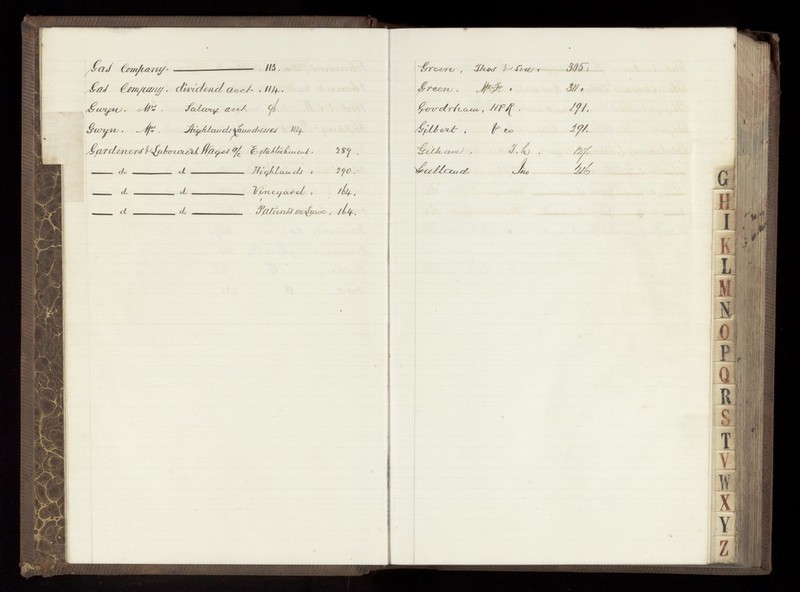 Gas Company. 113.
Gas Company. dividend acct. 114.
Gwyn. Mrs. Salary acct. %.
Gwyn. Mrs. Highlands Laundresses 114
Gardeners & Labourers Wages a/c Establishment. 289.
d d Highlands. 290.
d d Vineyard. 164.
d d Patients on Leave. 164.
Green, Thos & Sons. 305.
Green. 311.
Goodrham. 191.
Gilbert. & co 291.
Gilham.
Gulland Jno
G
H
I
K
L
M
N
O
P
Q
R
S
T
V
W
X
Y
Z